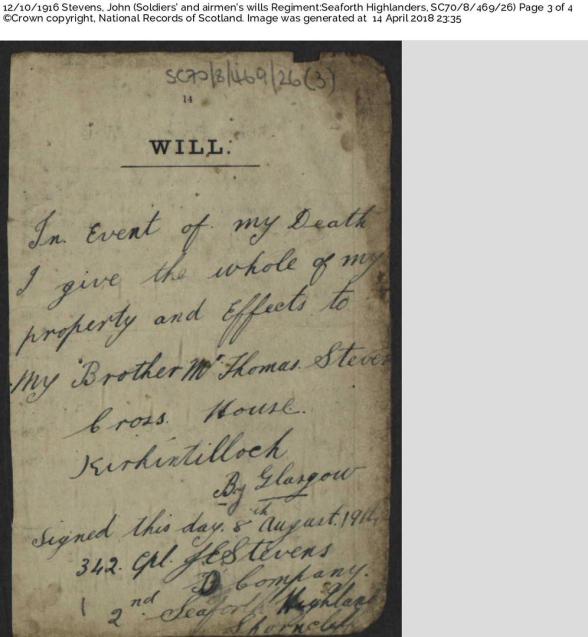 12/10/1916 Stevens, John (Soldiers' and airmen's wills Regiment:Seaforth Highlanders, SC70/8/469/26) Page 3 of 4
©Crown copyright, National Records of Scotland. Image was generated at 14 April 2018 23:35
SC70/8/469/26(3)
14
WILL.
In. Event of my Death
I give the whole of my
property and Effects to
My Brother Mr Thomas. Steven
Cross. House.
Kirkintilloch
By Glasgow
Signed this day. 8th August. 191
342. Cpl. Stevens
D Company.
2nd Seaforth Highlan
Shorncliff